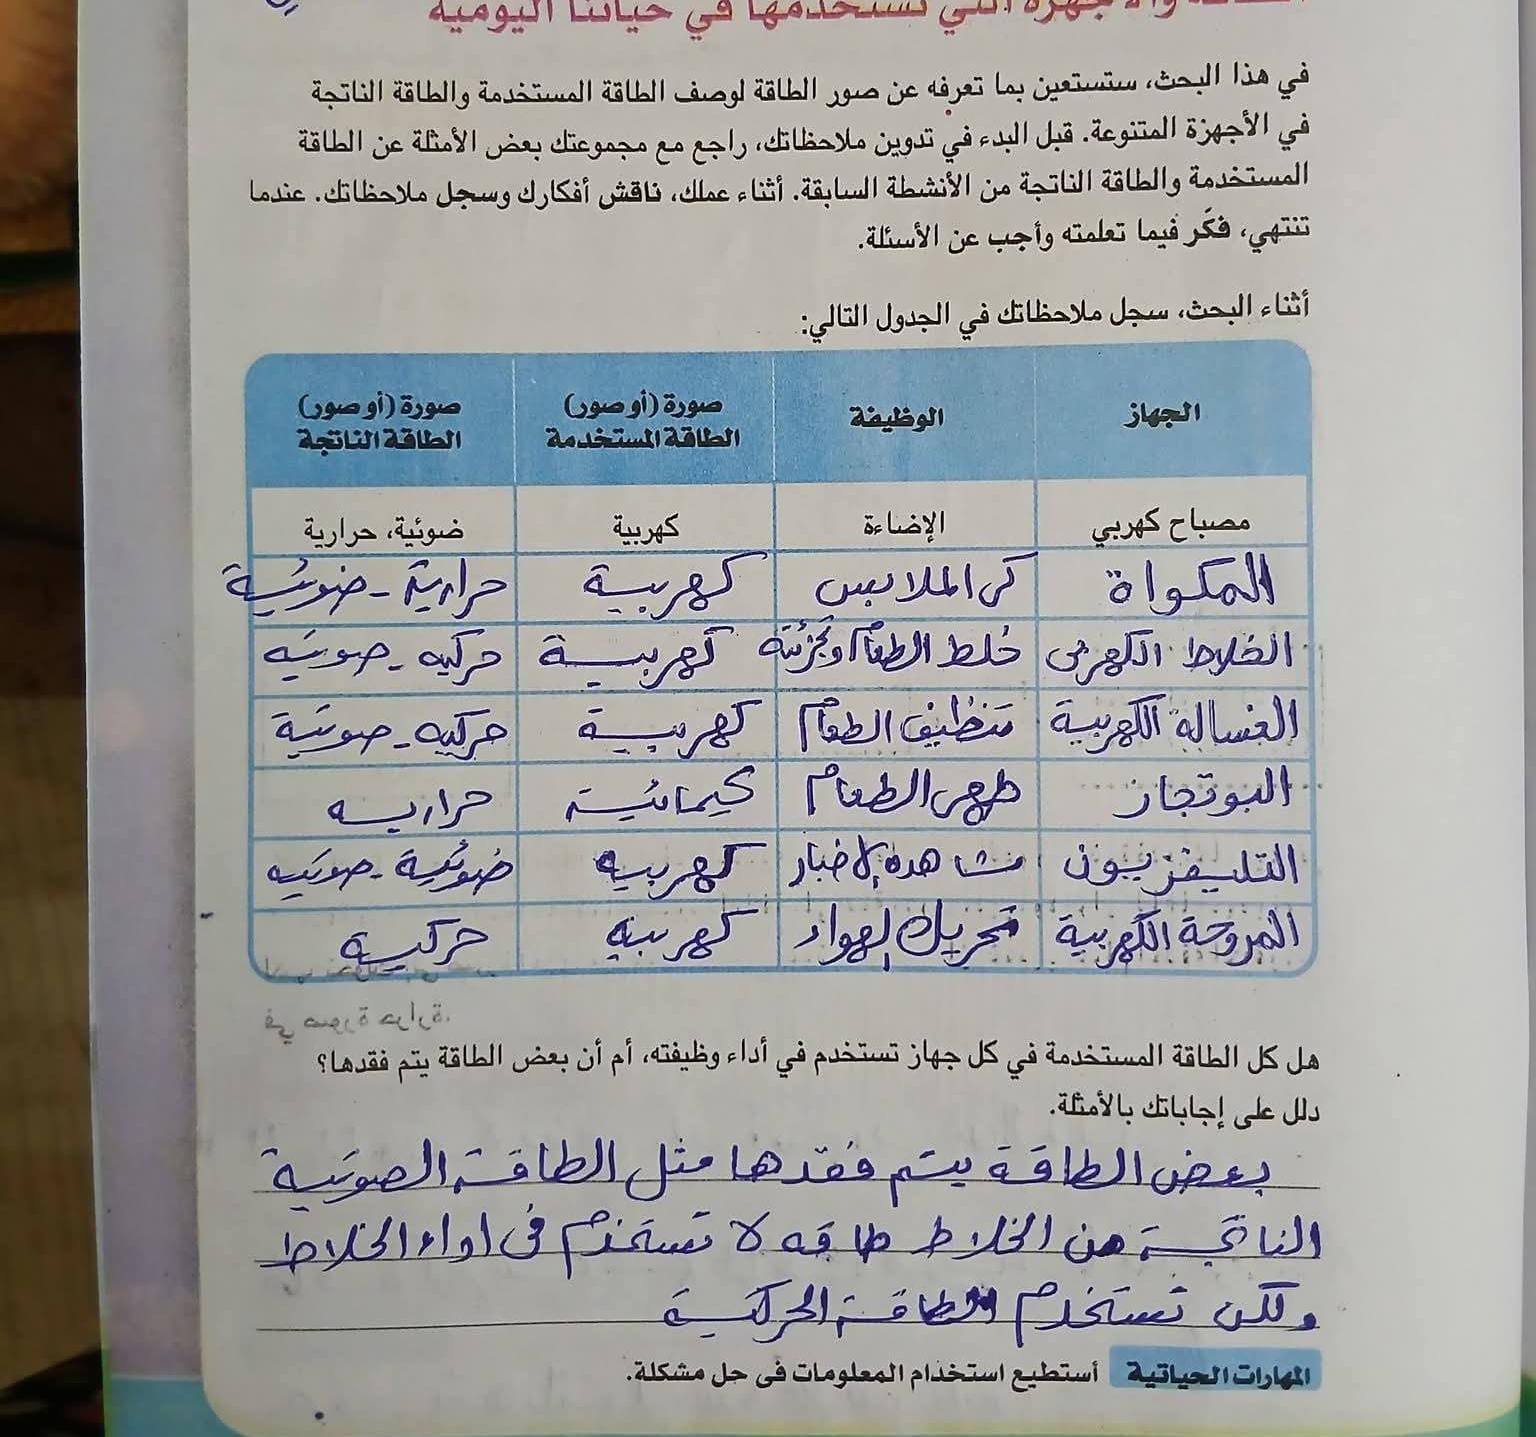 والأجهزة التي نستخدمها في حياتنا اليومية
في هذا البحث، ستستعين بما تعرفه عن صور الطاقة لوصف الطاقة المستخدمة والطاقة الناتجة
في الأجهزة المتنوعة. قبل البدء في تدوين ملاحظاتك، راجع مع مجموعتك بعض الأمثلة عن الطاقة
المستخدمة والطاقة الناتجة من الأنشطة السابقة. أثناء عملك، ناقش أفكارك وسجل ملاحظاتك. عندما
تنتهي، فكّر فيما تعلمته وأجب عن الأسئلة.
أثناء البحث، سجل ملاحظاتك في الجدول التالي:
الجهاز الوظيفة صورة (أو صور) الطاقة المستخدمة صورة (أو صور) الطاقة الناتجة
مصباح كهربي الإضاءة كهربية ضوئية، حرارية
المكواة كى الملابس كهربية حرارية - ضوئية
الخلاط الكهربى خلط الطعام وتجزئته كهربية حركيه - صوتيه
الغسالة الكهربية تنظيف الطعام كهربية حركيه - صوتية
البوتجاز طهى الطعام كيمائية حراريه
التليفزيون مشاهدة الاخبار كهربيه ضوئية - صوتيه
المروحة الكهربية تحريك الهواء كهربيه حركية
هل كل الطاقة المستخدمة في كل جهاز تستخدم في أداء وظيفته، أم أن بعض الطاقة يتم فقدها؟
دلل على إجاباتك بالأمثلة.
بعض الطاقة يتم فقدها مثل الطاقة الصوتية
الناتجة من الخلاط طاقه لا تستخدم فى اداء الخلاط
ولكن تستخدم الطاقة الحركية
المهارات الحياتية أستطيع استخدام المعلومات في حل مشكلة.